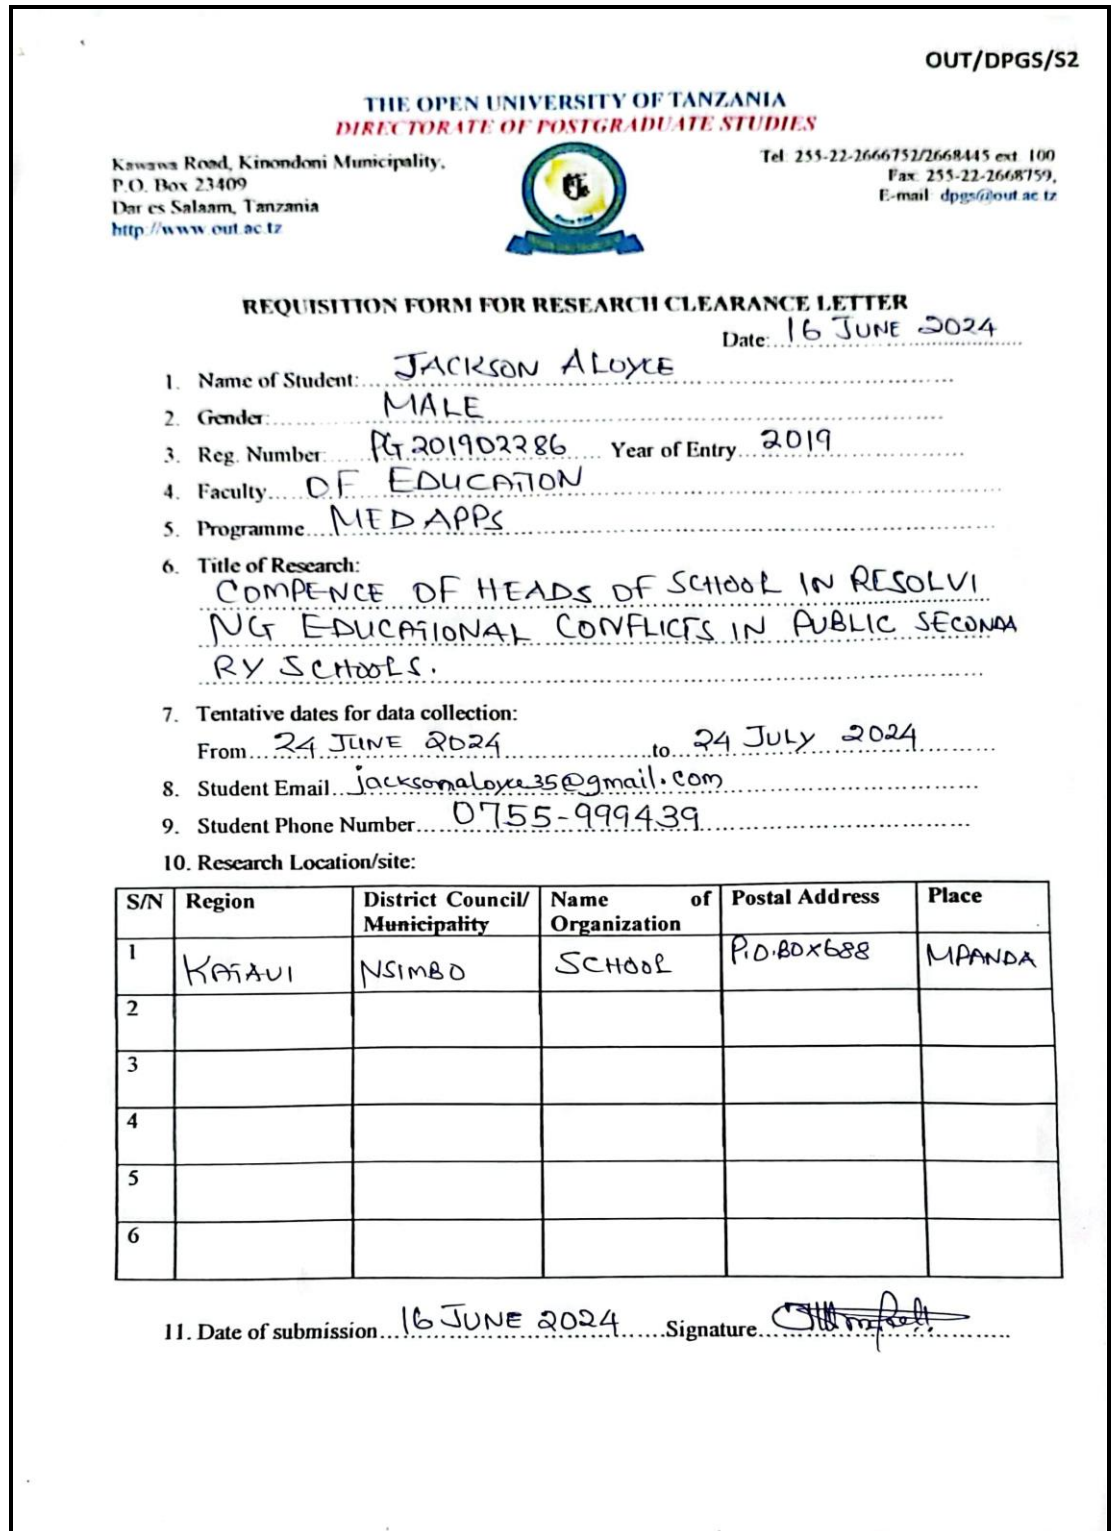 OUT/DPGS/S2
THE OPEN UNIVERSITY OF TANZANIA
DIRECTORATE OF POSTGRADUATE STUDIES
Kawawa Road, Kinondoni Municipality,
P.O. Box 23409
Dar es Salaam, Tanzania
http://www.out.ac.tz
Tel: 255-22-2666752/2668445 ext. 100
Fax: 255-22-2668759,
E-mail: dpgs@out.ac.tz
REQUISITION FORM FOR RESEARCH CLEARANCE LETTER
Date: 16 JUNE 2024
1. Name of Student: JACKSON ALOYCE
2. Gender: MALE
3. Reg. Number: PG201902286 Year of Entry 2019
4. Faculty OF EDUCATION
5. Programme MED APPS
6. Title of Research:
COMPENCE OF HEADS OF SCHOOL IN RESOLVI
NG EDUCATIONAL CONFLICTS IN PUBLIC SECONDA
RY SCHOOLS.
7. Tentative dates for data collection:
From 24 JUNE 2024 to 24 JULY 2024
8. Student Email jacksonaloyce35@gmail.com
9. Student Phone Number 0755-999439
10. Research Location/site:
S/N Region District Council/ Municipality Name of Organization Postal Address Place
1 KATAVI NSIMBO SCHOOL P.O.BOX688 MPANDA
2
3
4
5
6
11. Date of submission 16 JUNE 2024 Signature